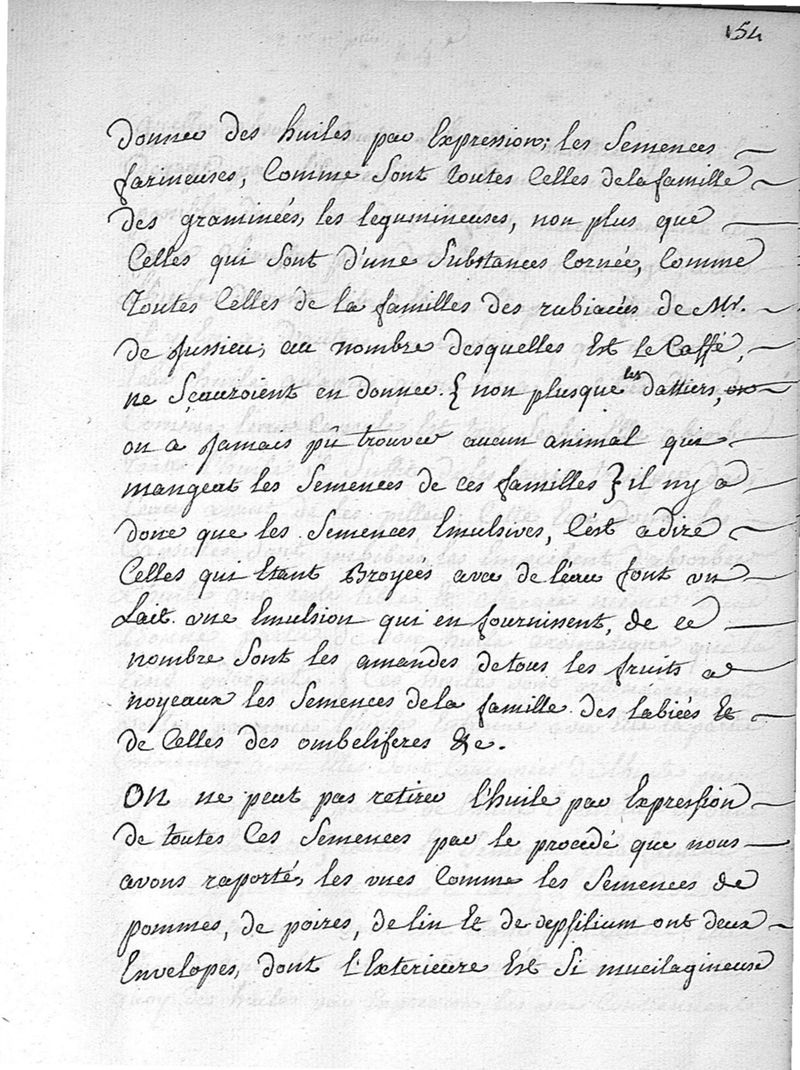 154
donner des huiles par Expression; les Semences
farineuses, Comme Sont toutes Celles de la famille
des graminées, les legumineuses, non plus que
Celles qui Sont d'une Substances Cornée, Comme
toutes Celles de la familles des rubiacées de Mr.
de Jussieu, au nombre desquelles Est le Caffé,
ne Sçauroient en donner. { non plusque les dattiers, on
on a Jamais pû trouver aucun animal qui
mangeat les Semences de ces familles } il ny a
donc que les Semences Emulsives, C'est a dire
Celles qui Etant Broyees avec de l'eau font un
Lait. une Emulsion qui en fournissent, de ce
nombre Sont les amandes de tous les fruits a
noyeaux les Semences de la famille des labiées Et
de Celles des ombeliferes &c.
ON ne peut pas retirer l'huile par Expression
de toutes Ces Semences par le procedé que nous
avons raporté, les unes Comme les Semences de
pommes, de poires, de lin Et de psilium ont deux
Envelopes, dont l'Exterieure Est Si mucilagineuse